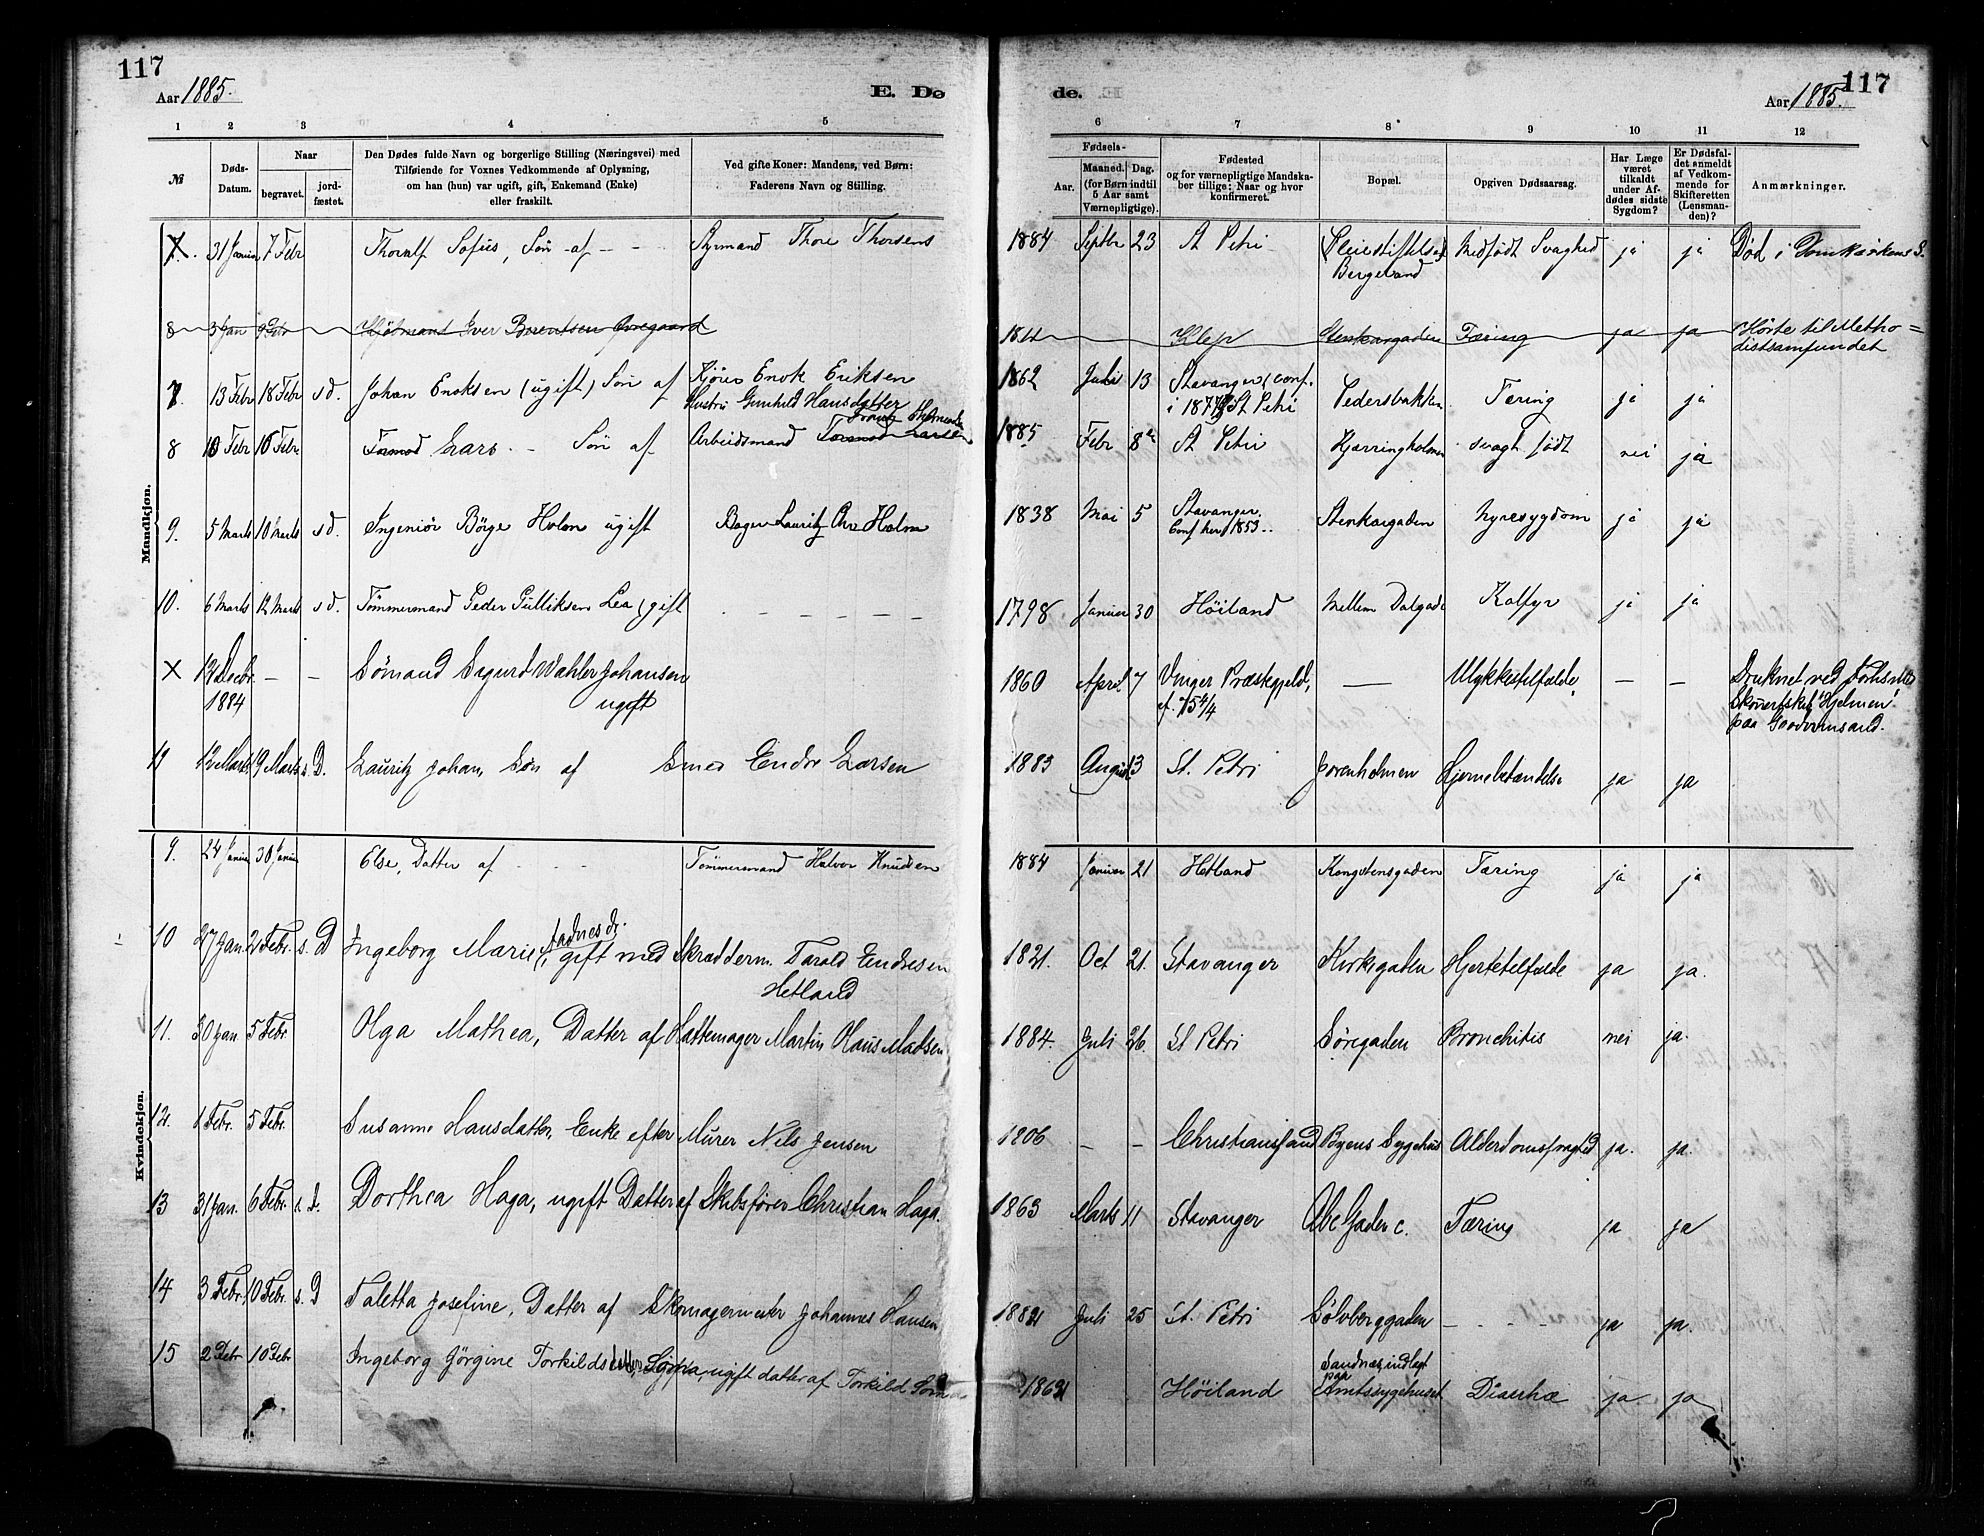 117
Aar 1885.
E. Dø
1 2 3 4 5
№
Døds-Datum.
Naar
begravet.
jord-fæstet.
Den Dødes fulde Navn og borgerlige Stilling (Næringsvei) med
Tilføiende for Voxnes Vedkommende af Oplysning,
om han (hun) var ugift, gift, Enkemand (Enke)
eller fraskilt.
Ved gifte Koner: Mandens, ved Børn:
Faderens Navn og Stilling.
Mandkjøn.
7. 31 Januar 7 Febr Thoralf Sofus, Søn af - - Styrmand Thore Thorsens
8 3 Jan 9 Febr Kjøbmand Iver Berentsen Øvregaard
7. 13 Febr 18 Febr sd. Johan Enoksen (ugift) Søn af Kjører Enok Eriksen
Hustru Gunhild Hansdatter
8 10 Febr 16 Febr Tormod Lars - Søn af Arbeidsmand Tormod Larsen
9. 5 Marts 10 Marts sd. Ingeniør Börge Holm ugift Bager Lauritz Chr Holm
10. 6 Marts 12 Marts sd. Tömmermand Peder Gulliksen Lea, gift - - - - -
X 12 Decbr. - - Sömand Sigurd Wahler Johansen
1884 ugift
11 12 Marts 19 Marts s. D. Lauritz Johan, Søn af Smed Endre Larsen
Kvindekjøn.
9. 24 Januar 30 Januar Else, Datter af - - Tömmermand Halvor Knudsen
10 27 Jan. 2 Febr. s. D Ingeborg Marie Aadnesdr., gift med Skrædderm. Tarald Endresen
Hetland
11. 30 Jan 5 Febr. Olga Mathea, Datter af Hattemager Martin Hans Madsen
12. 1 Febr. 5 Febr. Susanne Hansdatter, Enke efter Murer Nils Jensen
13 31 Jan. 6 Febr. s. D. Dorthea Haga, ugift Datter af Skibsfører Christian Haga.
14 3 Febr. 10 Febr. s. D Taletta Josefine, Datter af Skomagermester Johannes Hansen
15 2 Febr 10 Febr Ingeborg Jörgine Torkildsdatter, ugift datter af Torkild
de.
117
Aar 1885.
6 7 8 9 10 11 12
Fødsels-
Aar.
Maaned. Dag.
(for Børn indtil
5 Aar samt
Værnepligtige).
Fødested
og for værnepligtige Mandska-
ber tillige: Naar og hvor
konfirmeret.
Bopæl.
Opgiven Dødsaarsag.
Har Læge
været
tilkaldt
under Af-
dødes sidste
Sygdom?
Er Dødsfal-
det anmeldt
af Vedkom-
mende for
Skifteretten
(Lensman-
den)?
Anmærkninger.
1884 Septbr 23 St Petri Pleiestiftelsen Medfødt Svaghed ja ja Død i Domkirkens S.
Bergeland
Klep Stenkargaden Tæring ja ja Hørte til Metho=
distsamfundet
1862 Juli 13 Stavanger (conf. Pedersbakken Tæring ja ja
i St Petri
1885 Febr 8de St Petri Kjærringholmen svagt født nei ja
1838 Mai 5 Stavanger. Stenkargaden Nyresygdom ja ja
Conf her 1853..
1798 Januar 30 Höiland Mellem Dalgade Kolfyr ja ja
1860 April 7 Vinger Præstegjeld, — Ulykkestilfælde - - Druknet ved Forlis med
Skonertskib "Hjelmen"
paa Goodwinsand.
1883 August 3 St. Petri Jorenholmen Hjernebetændelse ja ja
1884 Januar 21 Hetland Kongstensgaden Tæring ja ja
1821. Oct 21. Stavanger Kirkegaden Hjertetilfælde ja ja.
1884. Juli 26. St Petri Söregaden Bronchitis nei ja.
1806 - - Christianssand Byens Sygehus Alderdomssvaghed ja. ja.
1863 Marts 11 Stavanger Abc Gaden c. Tæring ja ja
1882 Juli 25 St. Petri Sölvberggaden - - - ja ja.
Sandnæs, indlagt
paa
Höiland Amtssygehuset Diarrhæ ja ja